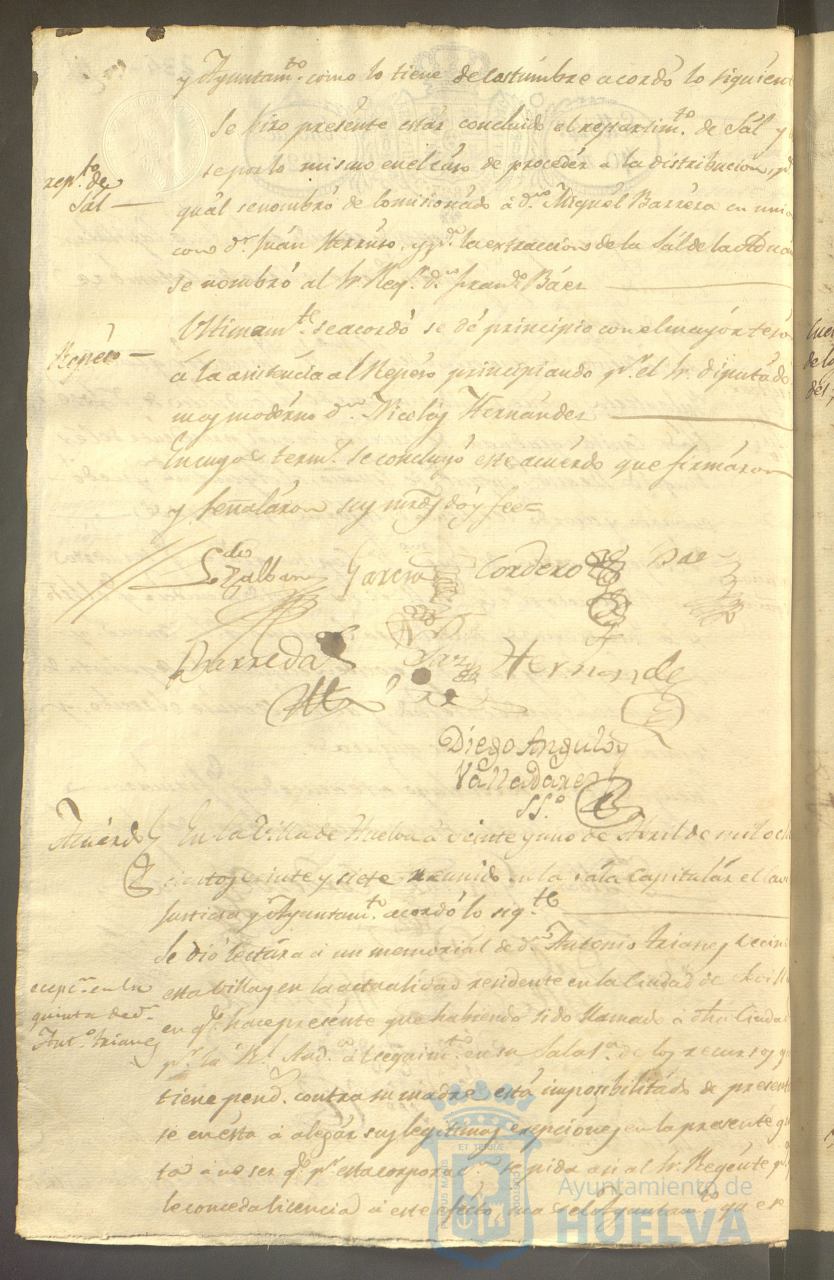 y Ayuntam.to como lo tiene de costumbre acordó lo siguien
Se hizo presente estár concluido el repartim.to de Sál y
rep.to de
Sál —
se por lo mismo en el caso de procedér á la distribucion p.a
quál se nombró de Comisionado á d.n Miguél Barrera en unio
con d.n Juán Herréro, y p.a la extraccion de la Sál de la Aduan
se nombró al Sr. Reg.r d.n Fran.co Báez
Repéso —
Ultimam.te se acordó se dé principio con el mayór
á la asisténcia al Repéso principiando p.r el Sr. diputádo
mas modérno d.n Nicolás Hernándes
En cuyos term.s se concluyó este acuérdo que firmáron
y señaláron sus mrds doy fee=
Garcia Cordero Baez
Barreda Diaz Hernande
Diego Angulo y
Valladares
SS.o
Acuérdo
En la Villa de Huelva á veinte y uno de Abril de mil och
cientos veinte y siete reunido en la Sala Capitulár el
Justicia y Ayuntam.to acordó lo sig.te
Se dió lectúra á un memoriál de d.n Antonio Trianes vecin
esta Villa y en la actualidad residente en la Ciudad de Sevilla
ecepc.n en la
quinta de d.n
Ant.o Trianes
en q.e hace presénte que habiendo sido llamado á dha Ciudad
p.r la R.l Aud.a al seguim.to en su Sala de los recursos q
tiene pend.s contra su madre está imposibilitádo de presént
se en ésta á alegár sus legítimas exepciones en la presente q
ta á no ser q.e p.r esta corporac.n se pida asi al Sr. Regénte p.a
le conceda licencia á este efécto
Ayuntamiento de
HUELVA